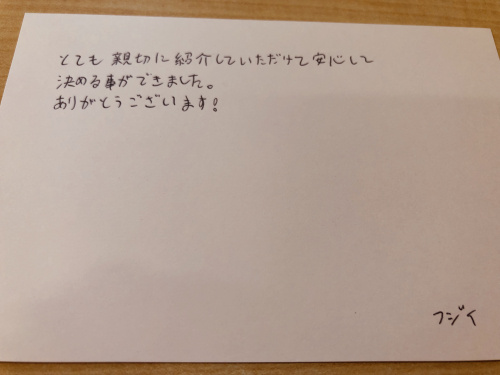 とても親切に紹介していただけて安心して
決める事ができました。
ありがとうございます!
フジイ